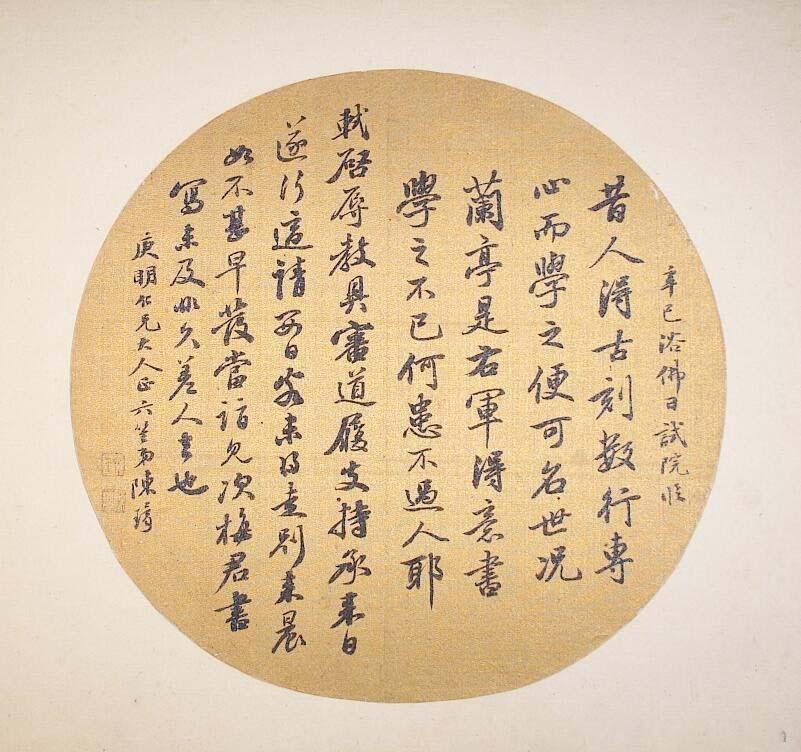 辛巳浴佛日試院臨
昔人得古刻數行專
心而學之便可名世况
蘭亭是右軍得意書
學之不已何患不過人耶
軾啓辱教具審道履支持承來日
遂行適請日客未得走別來晨
如不甚早發當詣見次梅君書
寫未及非久差人去也
庚明仁兄大人正六笙弟陳璚